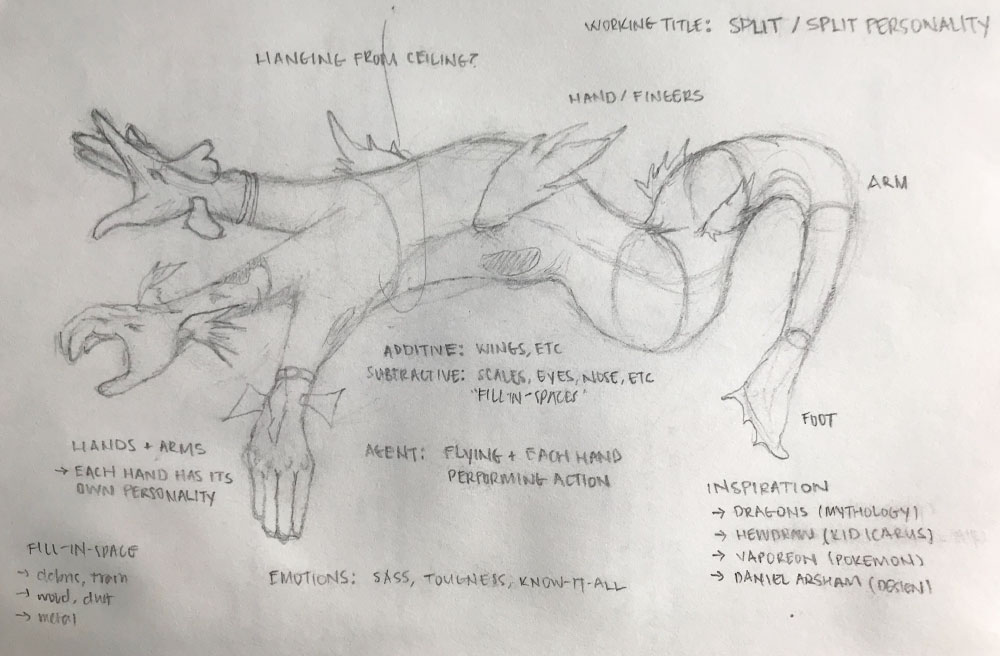 WORKING TITLE: SPLIT / SPLIT PERSONALITY
HANGING FROM CEILING?
HAND / FINGERS
ARM
ADDITIVE: WINGS, ETC
SUBTRACTIVE: SCALES, EYES, NOSE, ETC
"FILL-IN-SPACES"
FOOT
HANDS + ARMS
→ EACH HAND HAS ITS
OWN PERSONALITY
AGENT: FLYING + EACH HAND
PERFORMING ACTION
INSPIRATION
→ DRAGONS (MYTHOLOGY)
→ HEWDRAW (KID ICARUS)
→ VAPOREON (POKEMON)
→ DANIEL ARSHAM (DESIGN)
FILL-IN-SPACE
→ debris, trash
→ wood, dust
→ metal
EMOTIONS: SASS, TOUGNESS, KNOW-IT-ALL